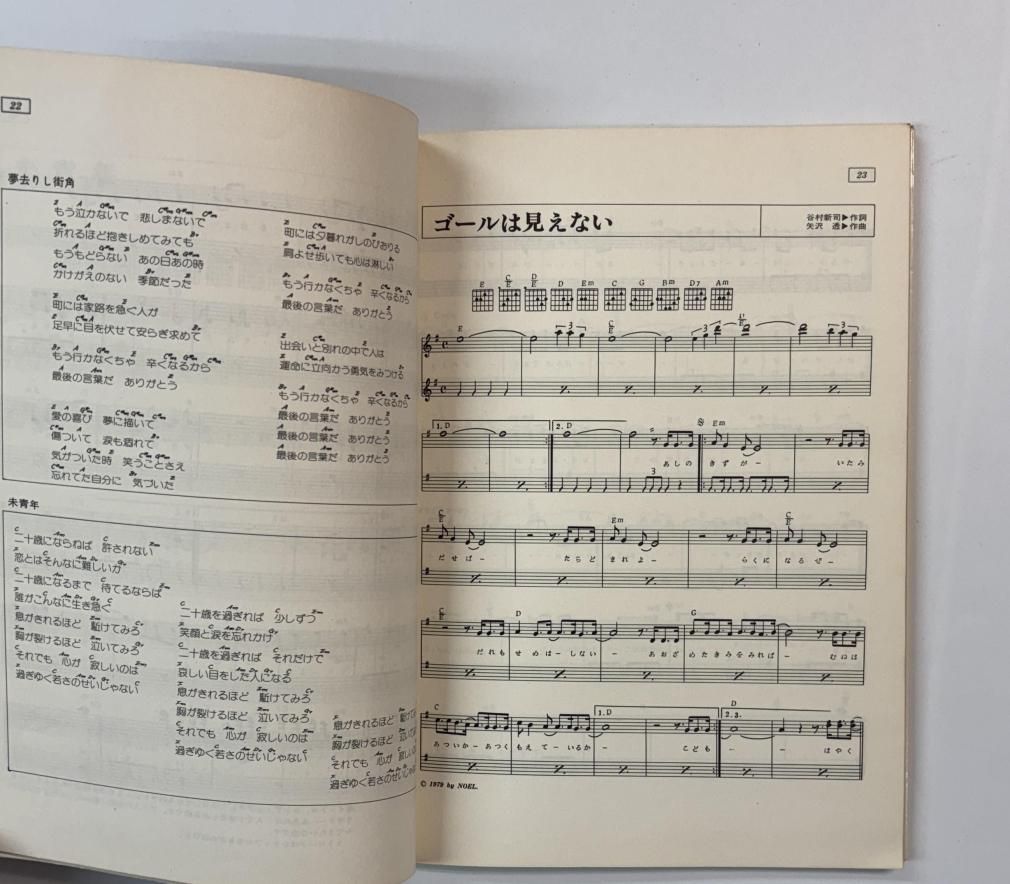 22
夢去りし街角
もう泣かないで 悲しまないで
折れるほど抱きしめてみても
もうもどらない あの日あの時
かけがえのない 季節だった
町には家路を急ぐ人が
足早に目を伏せて安らぎ求めて
もう行かなくちゃ 辛くなるから
最後の言葉だ ありがとう
愛の喜び 夢に描いて
傷ついて 涙も涸れて
気がついた時 笑うことさえ
忘れてた自分に 気づいた
町には夕暮れがしのびおりる
肩よせ歩いても心は淋しい
もう行かなくちゃ 辛くなるから
最後の言葉だ ありがとう
出会いと別れの中で人は
運命に立向かう勇気をみつける
もう行かなくちゃ 辛くなるから
最後の言葉だ ありがとう
最後の言葉だ ありがとう
最後の言葉だ ありがとう
未青年
二十歳にならねば 許されない
恋とはそんなに難しいか
二十歳になるまで 待てるならば
誰がこんなに生き急ぐ
息がきれるほど 駈けてみろ
胸が裂けるほど 泣いてみろ
それでも 心が 寂しいのは
過ぎゆく若さのせいじゃない
二十歳を過ぎれば 少しずつ
笑顔と涙を忘れかけ
二十歳を過ぎれば それだけで
哀しい目をした人になる
息がきれるほど 駈けてみろ
胸が裂けるほど 泣いてみろ
それでも 心が 寂しいのは
過ぎゆく若さのせいじゃない
息がきれるほど 駈け
胸が裂けるほど
それでも 心が 寂し
過ぎゆく若さのせいじ
23
ゴールは見えない
谷村新司▶作詞
矢沢 透▶作曲
E C/E D/E D Em C G Bm D7 Am
E C/E
1. D 2. D Em
あしの きずが− いたみ
C/E Em C/E
だせば− たちど まれよ− らくに なるぜ−
C/E D G
だれも せめは−しない− あおざ めたきみをみれば− むねは
C 1. D D 2. 3.
あついか−あつく もえ て−いるか− こども − − はやく
© 1979 by NOEL.